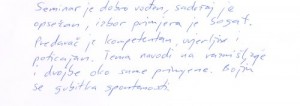 Seminar je dobro vođen, sadržaj je
opsežan, izbor primjera je bogat.
Predavač je kompetentan, uvjerljiv i
poticajan. Tema navodi na razmišljanje
i dvojbe oko same primjene. Bojim
se gubitka spontanosti.